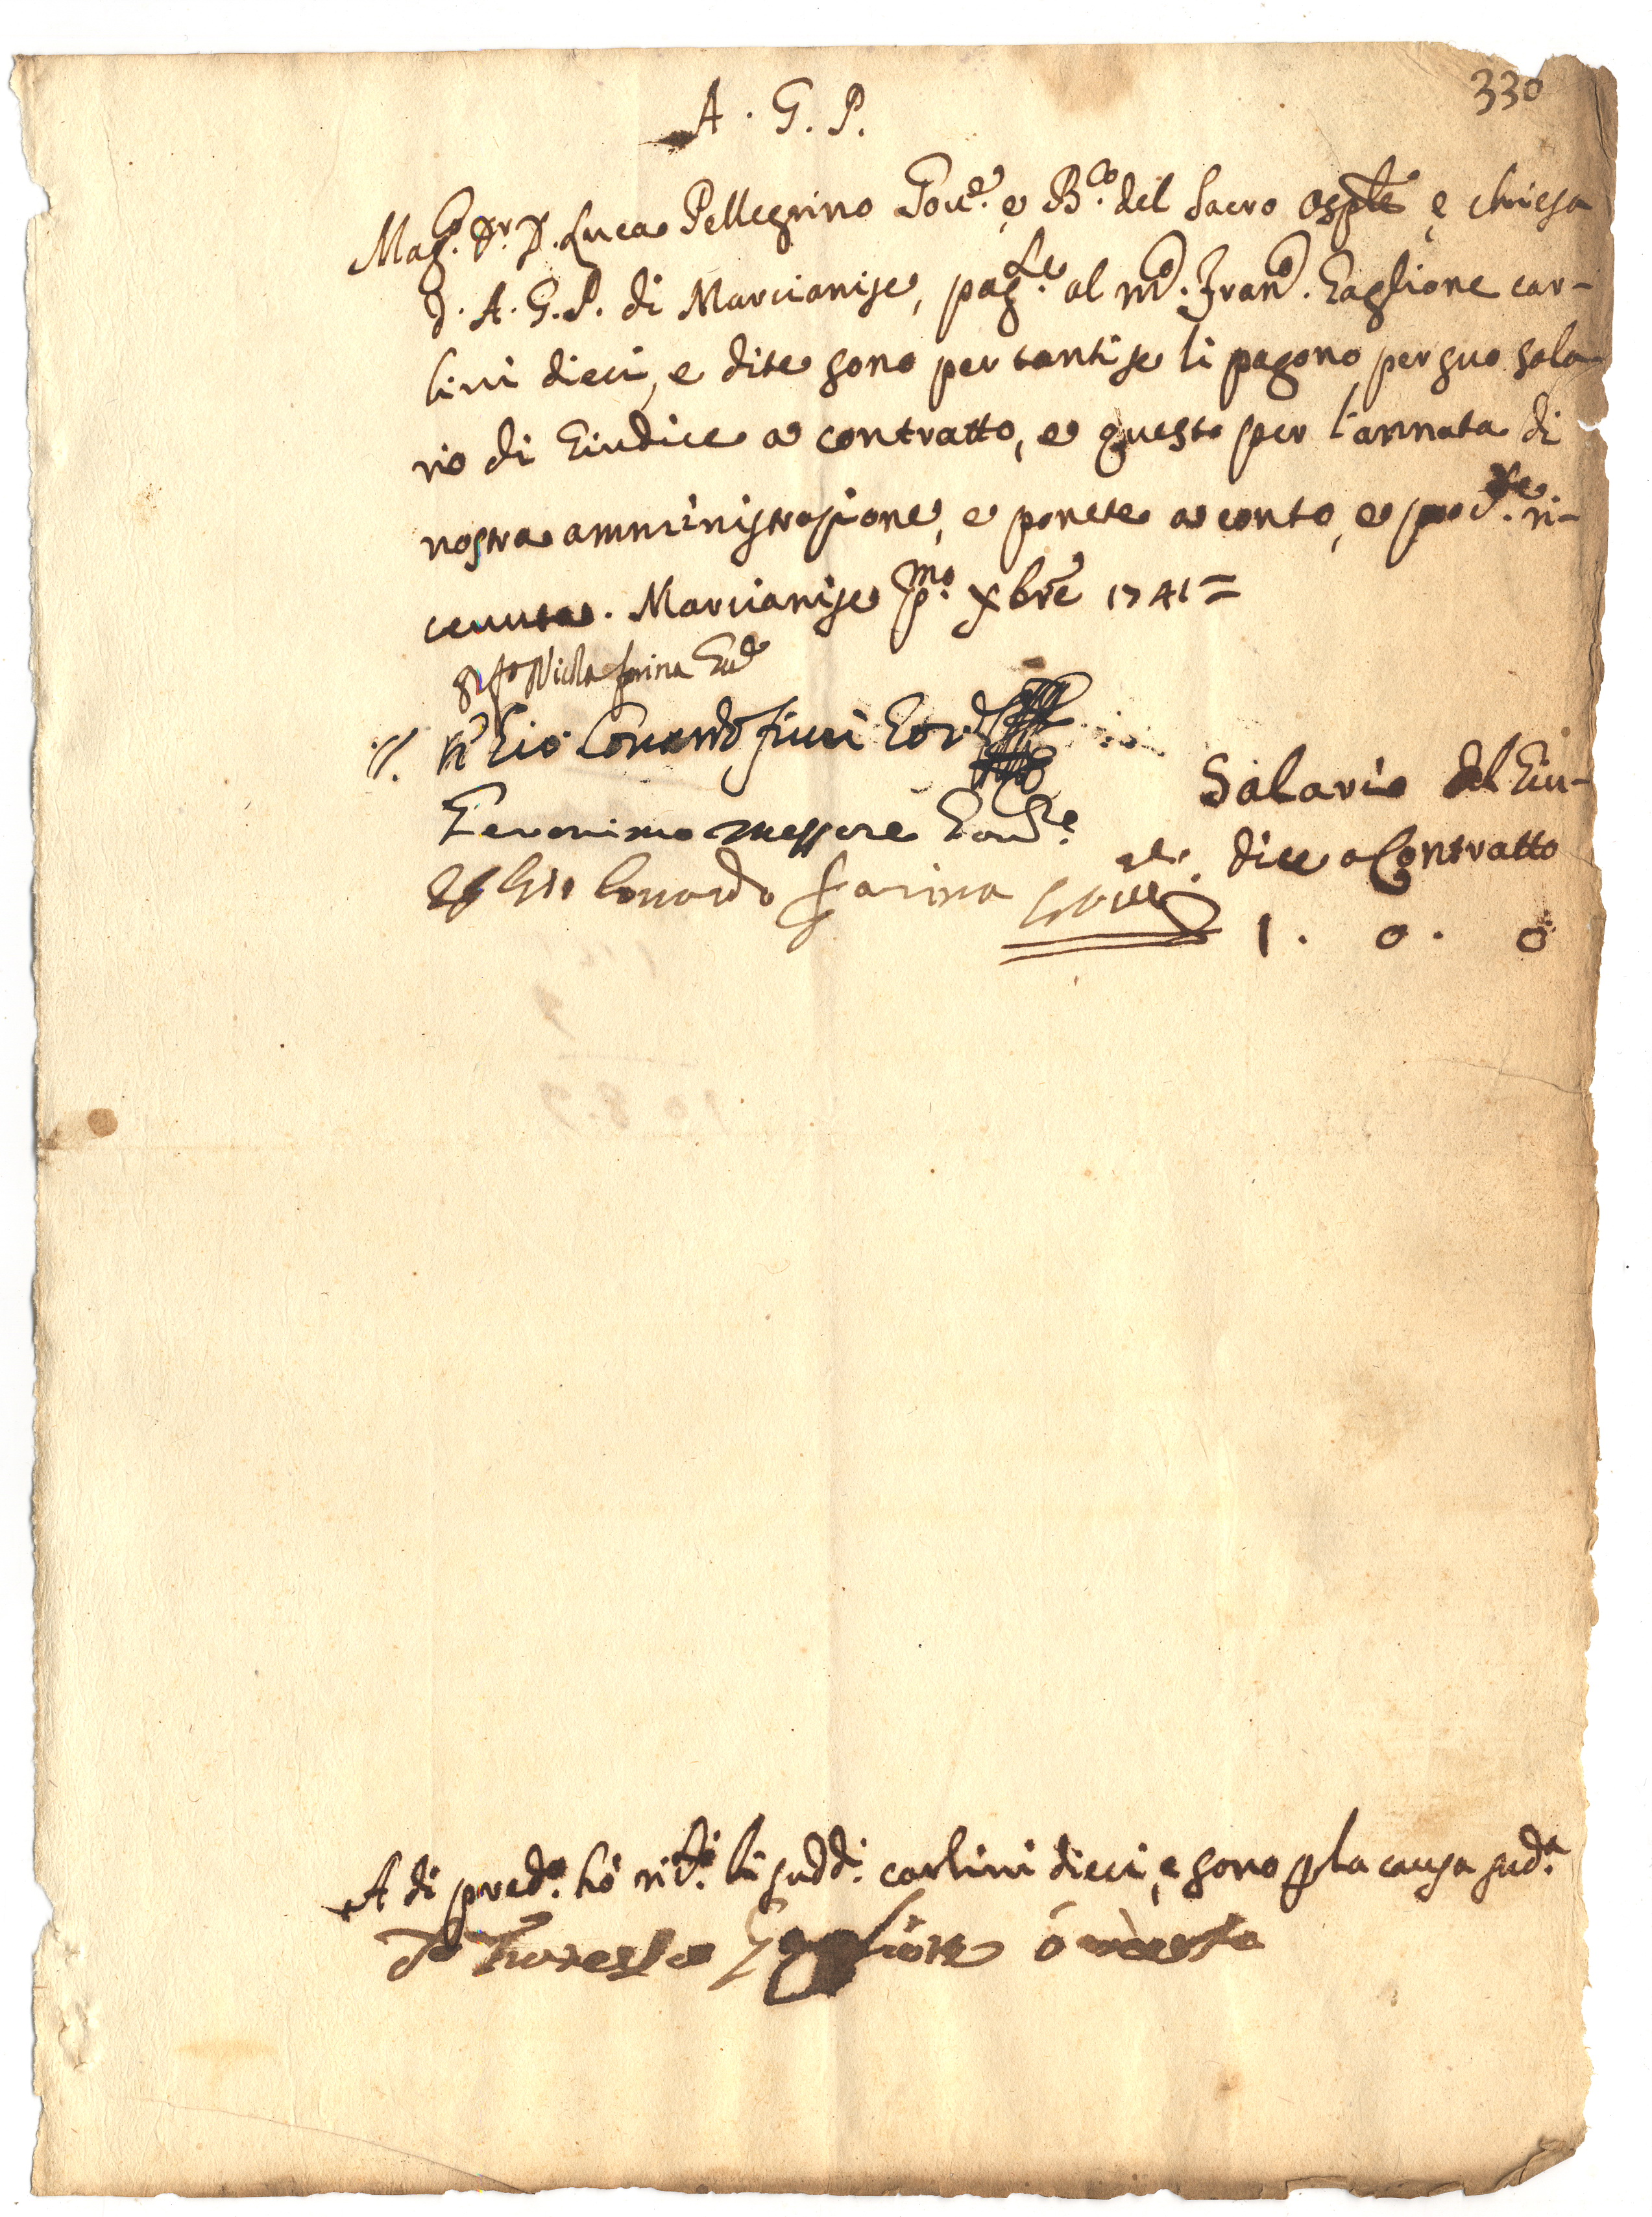 330
A. G. P.
Mag.co Dr. D. Luca Pellegrino Gov.re e B.co del Sacro Osp.le e chiesa
d. A. G. P. di Marcianise, pag.te al m.co Fran.co Taglione car-
lini dieci, e dite sono per tanti se li pagono per suo sala
rio di Giudice a contratto, e questo per l'annata di
nostra amministrazione, e ponete a conto, e ri-
ceuuta. Marcianise p.mo Xbre 1741=
Nicla farina
Gio Conardo
Geronimo messore Gou.re
Gio Conardo farina
Salario del Giu-
dice a Contratto
1. 0. 0
A di pred.o hò ric.ti li sudd.i carlini dieci, e sono p la causa sud.a